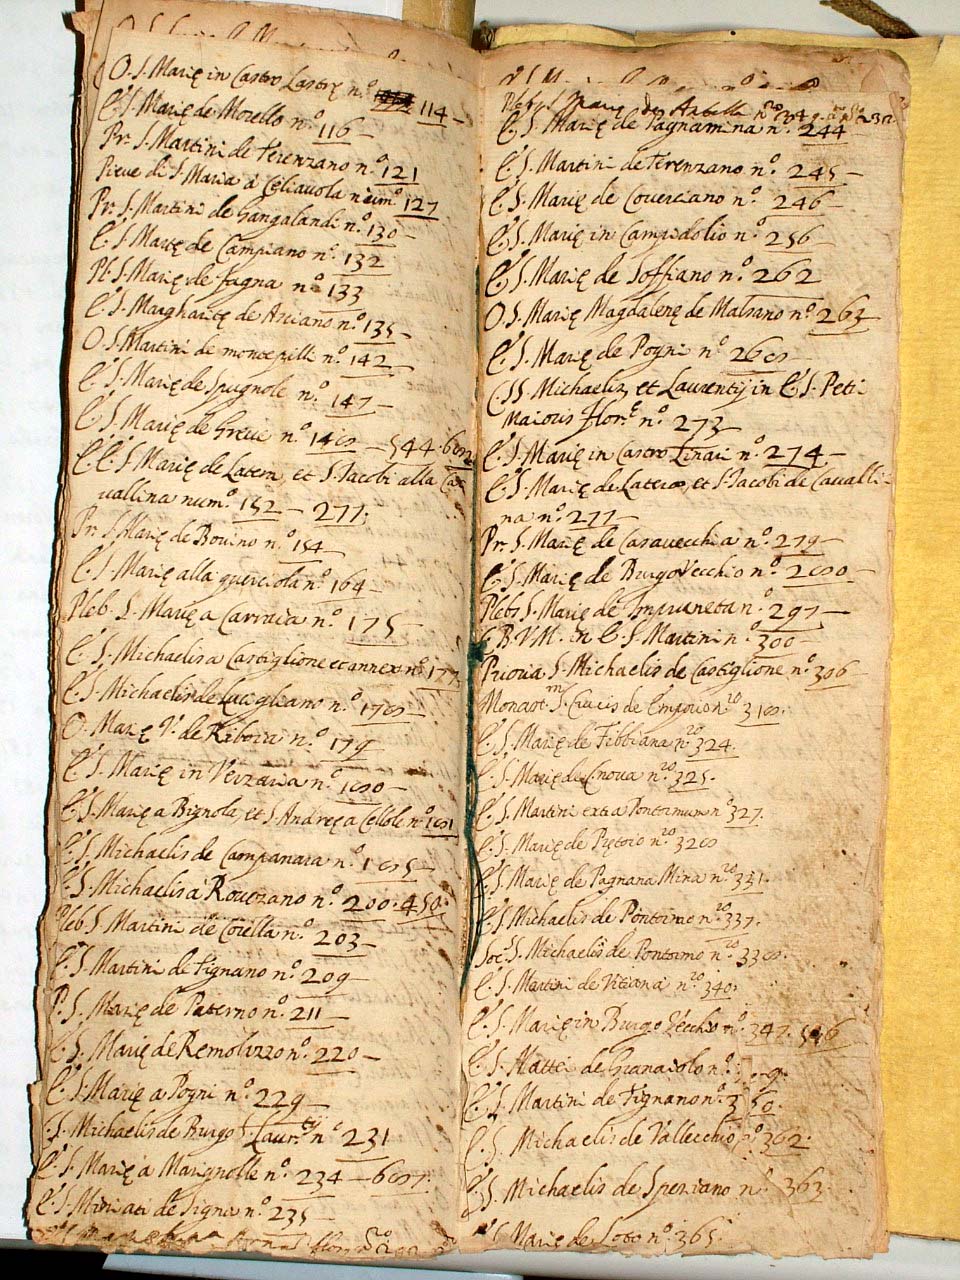 O. S. Marię in Castro Castrę n.º 114 -
E. S. Marię de Morello n.º 116 -
Pr. S. Martini de Terenzano n.º 121
Pieve di S. Maria à Cigliavola num.º 127
Pr. S. Martini de Gangalandi n.º 130 -
E. S. Marię de Campiano n.º 132
Pl. S. Marię de Fagna n.º 133
E. S. Margharitę de Asciano n.º 135 -
O. S. Martini de montepilli n.º 142 -
E. S. Marię de Spugnole n.º 147 -
E. S. Marię de Greve n.º 148 - 544.
E. E. S. Marię de Latera, et S. Jacobi alla Ca-
vallina num.º 152 - 277.
Pr. S. Marię de Bovino n.º 154 -
E. S. Marię alla querciola n.º 164 -
Pleb. S. Marię a Carraia n.º 175 -
E. S. Michaelis a Castiglione et annex. n.º 177
E. S. Michaelis de Lucigliano n.º 178 -
O. Marię V. de Riboia n.º 179
E. S. Marię in Verzaria n.º 180 -
E. S. Marię a Bignola, et S. Andreę a Cellole n.º 181
E. S. Michaelis de Campanara n.º 185 -
E. S. Michaelis à Rovezano n.º 200. 450.
Pleb. S. Martini de Corella n.º 203 -
E. S. Martini de Fignano n.º 209 -
P. S. Marię de Paterno n.º 211 -
E. S. Marię de Remoluzzo n.º 220 -
E. S. Marię a Pogni n.º 229 -
E. S. Michaelis de Burgo S. Laur. n.º 231
E. S. Marię à Marignolle n.º 234 - 687.
E. S. Miniati de Signa n.º 235 -
Pleb. S. Marię de Antella n.º 234
E. S. Marię de Pagnamina n.º 244
E. S. Martini de Terenzano n.º 245 -
E. S. Marię de Coverciano n.º 246 -
E. S. Marię in Campidolio n.º 256 -
E. S. Marię de Soffiano n.º 262
O. S. Marię Magdalenę de Malrano n.º 263 -
E. S. Marię de Pogni n.º 268 -
SS. Michaelis, et Laurentij in E. S. Petri
Maioris Flor.ę n.º 273 -
E. S. Marię in Castro Linari n.º 274 -
E. S. Marię de Latera, et S. Jacobi de Cavalli-
na n.º 277 -
Pr. S. Marię de Casavecchia n.º 279 -
E. S. Marię de Burgo Vecchio n.º 280 -
Pleb. S. Marię de Impruneta n.º 297 -
B. V. M. in E. S. Martini n.º 300 -
Prioria S. Michaelis de Castiglione n.º 306 -
Monast.m S. Crucis de Emporio n.º 318.
E. S. Marię de Fibbiana n.º 324.
E. S. Marię de Cnova n.º 325.
E. S. Martini extra Pontormum n.º 327.
E. S. Marię de Pętoio n.º 328
E. S. Marię de Pagnana Mina n.º 331.
E. S. Michaelis de Pontormo n.º 337.
Soc. S. Michaelis de Pontormo n.º 338.
E. S. Martini de Vitiana n.º 340.
E. S. Marię in Burgo Vecchio n.º 347. 546
E. S. Mattei de Granaiolo n.º
E. S. Martini de Fignano n.º 350.
E. S. Michaelis de Vallecchio n.º 362.
E. S. Michaelis de Speziano n.º 363
E. S. Marię de Loto n.º 365.